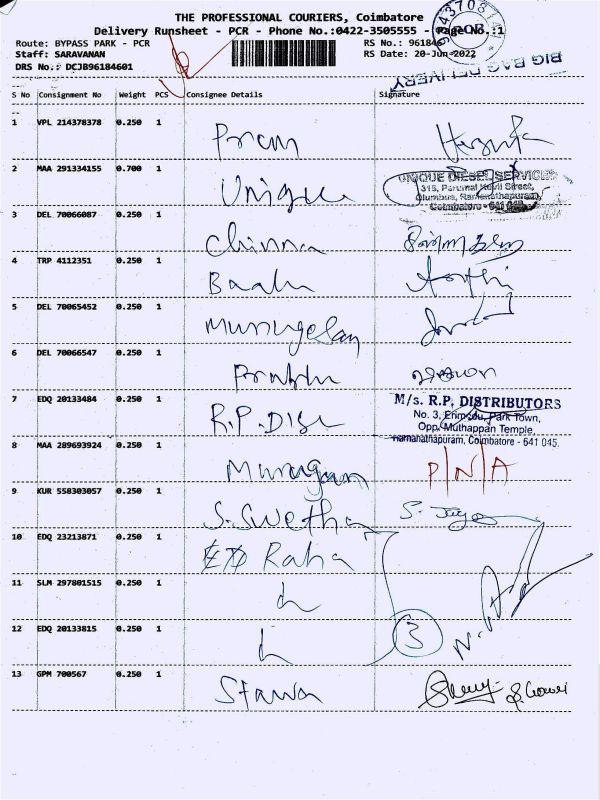 THE PROFESSIONAL COURIERS, Coimbatore
Delivery Runsheet - PCR - Phone No.:0422-3505555 - Page No.:1
Route: BYPASS PARK - PCR
RS No.: 961846
Staff: SARAVANAN
RS Date: 20-Jun-2022
DRS No.: DCJB96184601
BIG BAG DELIVERY
S No Consignment No Weight PCS Consignee Details Signature
1 VPL 214378378 0.250 1 Prem
2 MAA 291334155 0.700 1 Unique
UNIQUE DIESEL SERVICES
315, Perumal Kovil Street,
Olumbus, Ramanathapuram,
Coimbatore - 641 045
3 DEL 70066087 0.250 1 Chinna
4 TRP 4112351 0.250 1 Baalu
5 DEL 70065452 0.250 1 Murugesan
6 DEL 70066547 0.250 1 Prabhu
7 EDQ 20133484 0.250 1 R.P. Dist
M/s. R.P. DISTRIBUTORS
No. 3, Park Town,
Opp. Muthappan Temple,
Ramanathapuram, Coimbatore - 641 045.
8 MAA 289693924 0.250 1 Murugan P/N/A
9 KUR 558303057 0.250 1 S. Swetha
10 EDQ 23213871 0.250 1 Raha
11 SLM 297801515 0.250 1
12 EDQ 20133815 0.250 1 3
13 GPM 700567 0.250 1